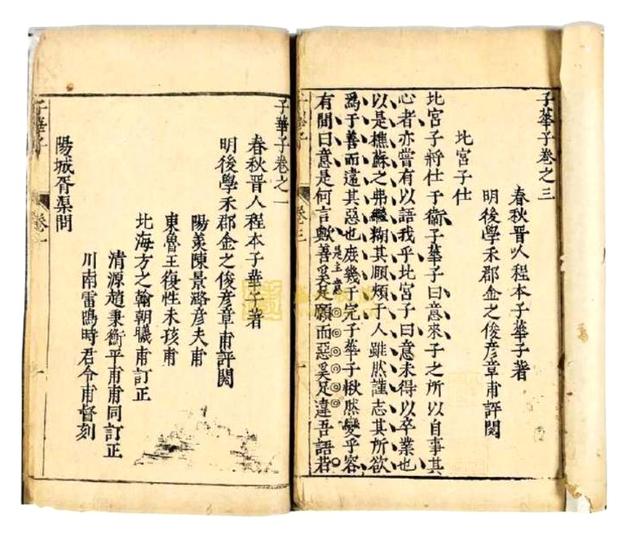 子華子卷之三
春秋晉人程本子華子著
明後學禾郡金之俊彥章甫評閱
北宮子仕
北宮子將仕于衞子華子曰意來子之所以自事其
心者亦嘗有以語我乎北宮子曰意未得以卒業也
以是樵蘇之弗繼糊其頰于人雖然謹志其所欲
爲于善而違其惡也庶幾于完子華子愀然變乎容
有間曰意是何言歟善奚足願而惡奚足違吾語若
子華子 卷三
子華子卷之一
春秋晉人程本子華子著
明後學禾郡金之俊彥章甫評閱
陽羨陳景潞彥夫甫
東魯王復性未孩甫
北海方之翰朝職甫訂正
清源趙秉衡平甫甫同訂正
川南雷鳴時君令甫督刻
陽城胥渠問
子華子 卷一